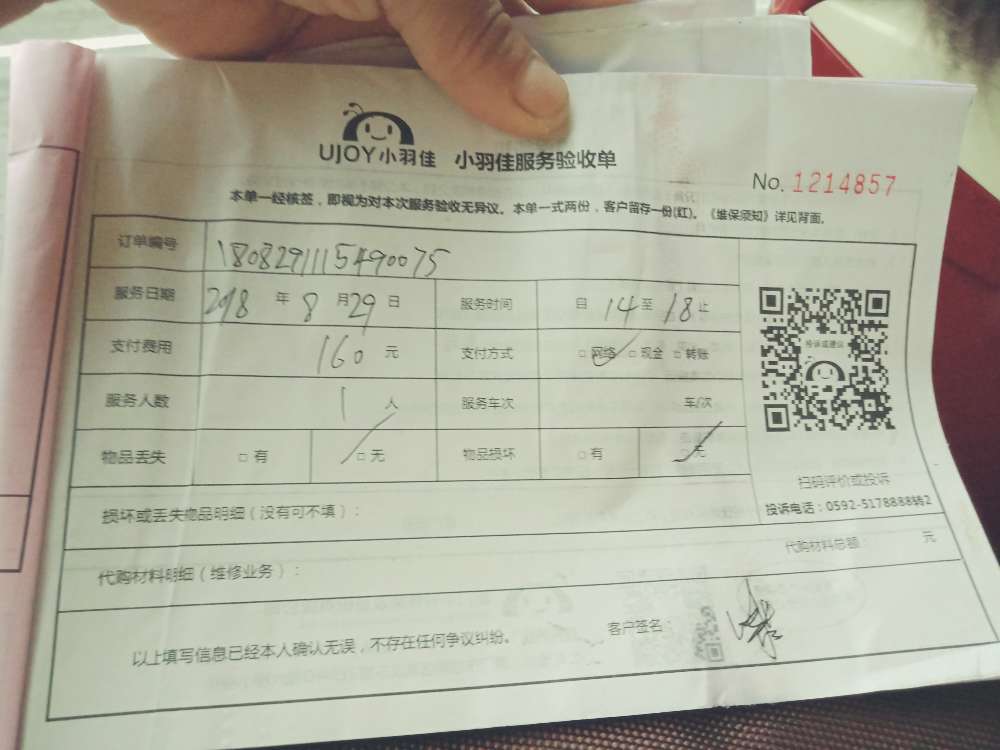 UJOY小羽佳 小羽佳服务验收单
No. 1214857
本单一经核签，即视为对本次服务验收无异议。本单一式两份，客户留存一份(红)。《维保须知》详见背面。
订单编号 1808291115490075
服务日期 2018 年 8 月 29 日 服务时间 自 14 至 18 止
支付费用 160 元 支付方式 □ 网络 □ 现金 □ 转账
服务人数 1 人 服务车次 车/次
物品丢失 □ 有 □ 无 物品损坏 □ 有 □ 无
投诉或建议
扫码评价或投诉
投诉电话：0592-5178888转2
损坏或丢失物品明细（没有可不填）：
代购材料明细（维修业务）： 代购材料总额： 元
以上填写信息已经本人确认无误，不存在任何争议纠纷。 客户签名：